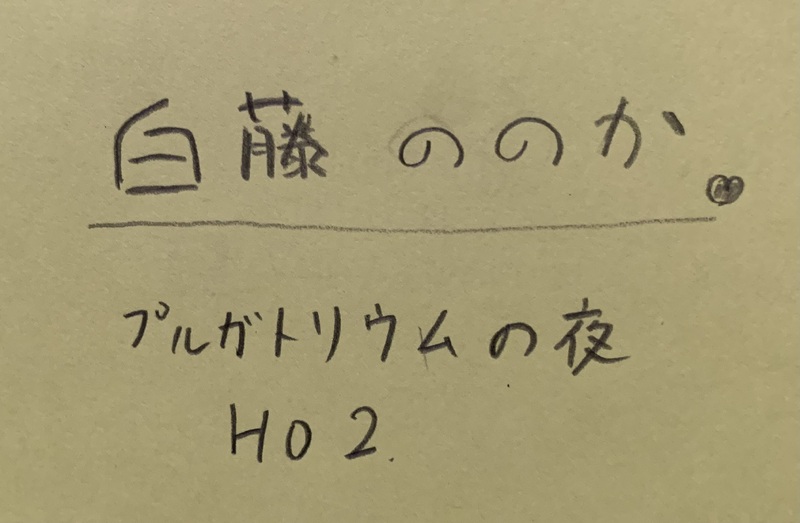 白藤 ののか。
プルガトリウムの夜
HO2.